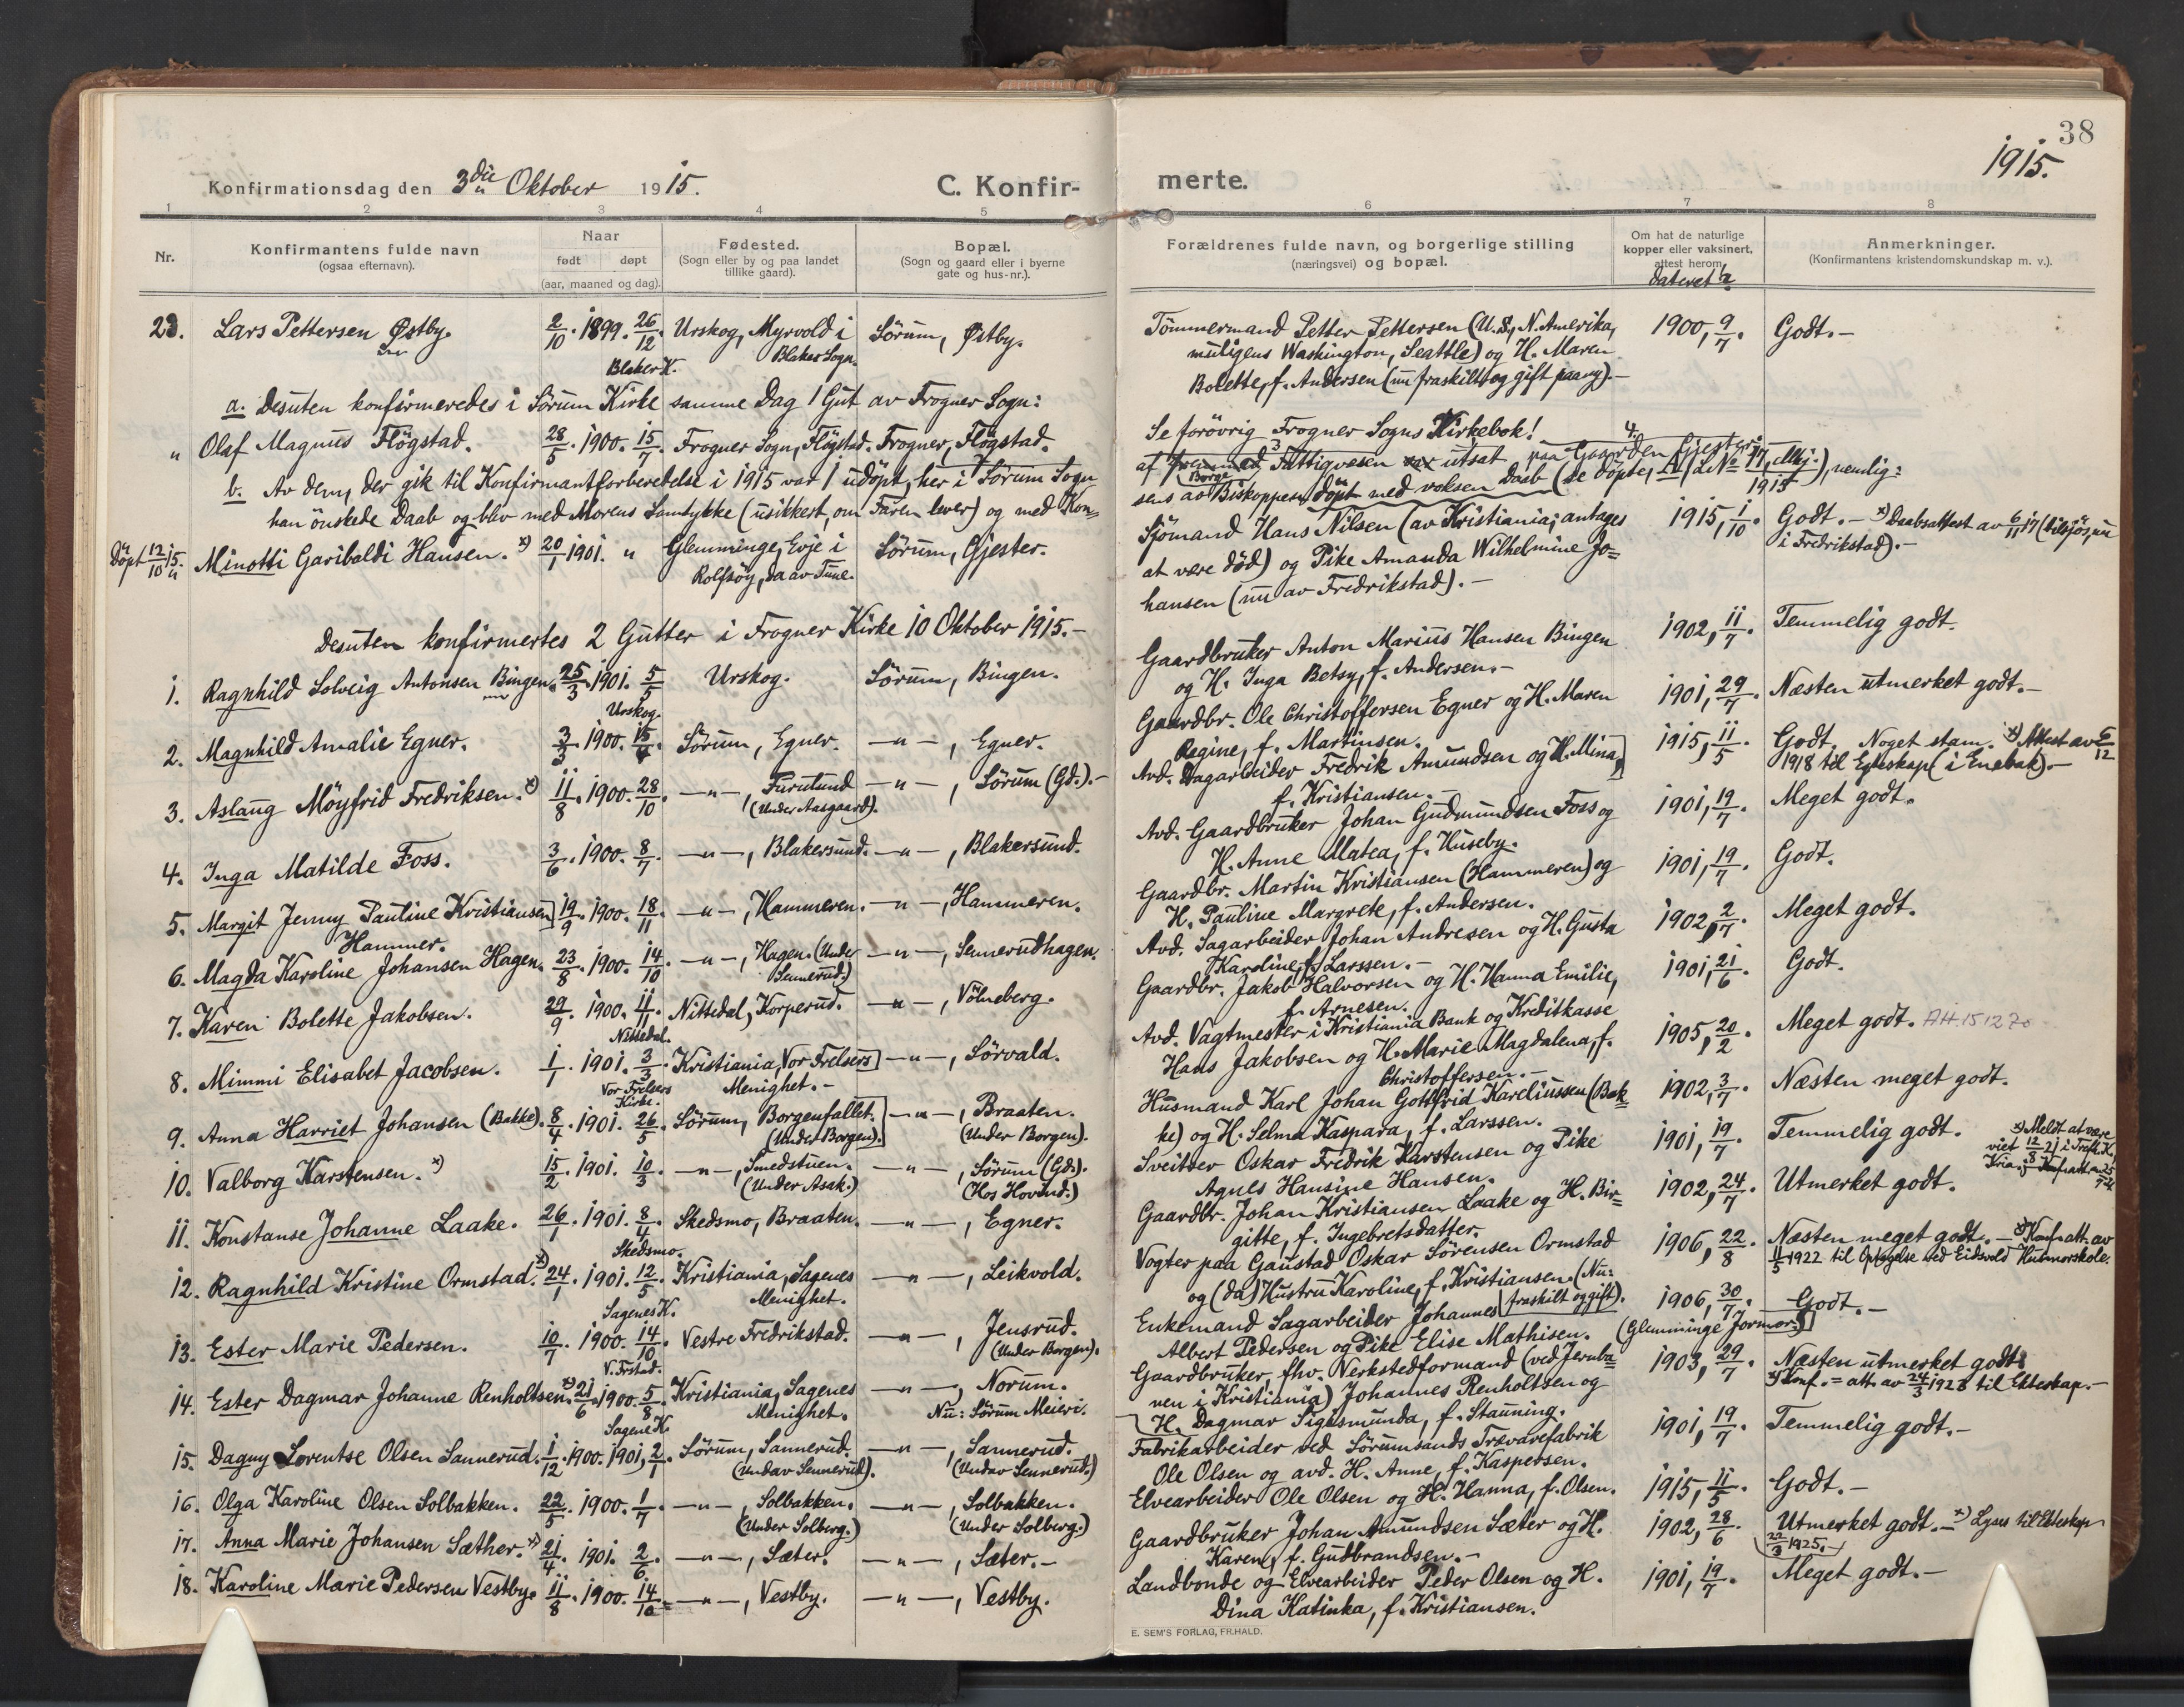 38
1915.
Konfirmationsdag den 3die Oktober 1915.
C. Konfir-
merte.
1 2 3 4 5 6 7 8
Nr.
Konfirmantens fulde navn
(ogsaa efternavn).
Naar
født døpt
(aar, maaned og dag).
Fødested.
(Sogn eller by og paa landet
tillike gaard).
Bopæl.
(Sogn og gaard eller i byerne
gate og hus-nr.).
Forældrenes fulde navn, og borgerlige stilling
(næringsvei) og bopæl.
Om hat de naturlige
kopper eller vaksinert,
attest herom
dateret
Anmerkninger.
(Konfirmantens kristendomskundskap m. v.).
23. Lars Pettersen Østby. 2/10. 1899. 26/12 Urskog, Myrvold i Sörum, Østby.
Blaker K. Blaker Sogn.
Tömmermand Petter Pettersen (U.S., N. Amerika, 1900, 9/7. Godt.-
muligens Washington, Seattle) og H. Maren
Bolette, f. Andersen (nu fraskilt og gift paany).-
a. Desuten konfirmeredes i Sörum Kirke samme Dag 1 Gut av Frogner Sogn:
" Olaf Magnus Flögstad. 28/5. 1900. 15/7. Frogner Sogn, Flögstad. Frogner, Flögstad.
Se forövrig Frogner Sogns Kirkebok!
b. Av dem, der gik til Konfirmantforberedelse i 1915 var 1 udöpt, her i Sörum Sogn
af Fattigvesen utsat paa Gaarden Gjester:
han önskede Daab og blev med Morens Samtykke (usikkert, om Faren lever) og med Kon=
sens av Biskoppen döpt med voksen Daab (se Döpte, 1915), nemlig:
Döpt 12/10 15. Minotti Garibaldi Hansen. x) 20/1 1901. " Glemminge, Evje i Sörum, Gjester.
Rolfsöy, da av Tune.
Sjömand Hans Nilsen (av Kristiania; antages 1915, 1/10. Godt.- x) Daabsattest av 6/11 17
at være död) og Pike Amanda Wilhelmine Jo= i Fredrikstad).-
hansen (nu av Fredrikstad).-
Desuten konfirmertes 2 Gutter i Frogner Kirke 10 Oktober 1915.-
1. Ragnhild Solveig Antonsen Bingen. 25/3. 1901. 5/5 Urskog. Sörum, Bingen.
Urskog.
Gaardbruker Anton Marius Hansen Bingen 1902, 11/7. Temmelig godt.
og H. Inga Betsy, f. Andersen.-
2. Magnhild Amalie Egner. 3/3. 1900. 15/4. Sörum, Egner. -"-, Egner.
Gaardbr. Ole Christoffersen Egner og H. Maren 1901, 29/7. Næsten utmerket godt.-
Regine, f. Martinsen.
3. Aslaug Möyfrid Fredriksen. x) 11/8. 1900. 28/10. -"-, Furulund -"-, Sörum (Gd.).-
(Under Aasgaard).
Avd. Dagarbeider Fredrik Amundsen og H. Mina, 1915, 11/5. Godt. Noget stam. x) Attest av 6/12
f. Kristiansen.- 1918 til Egteskap (i Enebak).-
4. Inga Matilde Foss. 3/6. 1900. 8/7. -"-, Blakersund. -"-, Blakersund.
Avd. Gaardbruker Johan Gudmundsen Foss og 1901, 19/7. Meget godt.
H. Anne Matea, f. Huseby.
5. Margit Jenny Pauline Kristiansen 19/9. 1900. 18/11. -"-, Hammeren. -"-, Hammeren.
Hammer.
Gaardbr. Martin Kristiansen (Hammeren) og 1901, 19/7. Godt.
H. Pauline Margrete, f. Andersen.
6. Magda Karoline Johansen Hagen. 23/8. 1900. 14/10. -"-, Hagen. (Under -"-, Sennerudhagen.
Sennerud.)
Avd. Sagarbeider Johan Andresen og H. Gusta 1902, 2/7. Meget godt.
Karoline, f. Larssen.-
7. Karen Bolette Jakobsen. 29/9. 1900. 11/11. Nittedal, Korperud. -"-, Völneberg.
Nittedal.
Gaardbr. Jakob Halvorsen og H. Hanna Emilie, 1901, 21/6. Godt.
f. Arnesen.
8. Mimmi Elisabet Jacobsen. 1/1. 1901. 3/3. Kristiania, Vor Frelsers -"-, Sörvald.
Vor Frelsers Menighet.-
Kirke.
Avd. Vagtmester i Kristiania Bank og Kreditkasse 1905, 20/2. Meget godt. AH 151270
Hans Jakobsen og H. Marie Magdalena, f.
Christoffersen.-
9. Anna Harriet Johansen (Bakke). 8/4. 1901. 26/5. Sörum, Borgenfallet. -"-, Braaten.
(Under Borgen). (Under Borgen).
Husmand Karl Johan Gottfrid Kareliussen (Bak= 1902, 3/7. Næsten meget godt.
ke) og H. Selma Kaspara, f. Larssen.
10. Valborg Karstensen. x) 15/2. 1901. 10/3. -"-, Smedstuen. -"-, Sörum (Gd.).
(Under Asak.) (Hos Hovind.)
Sveitser Oskar Fredrik Karstensen og Pike 1901, 19/7. Temmelig godt. x) Meldt at være
Agnes Hansine Hansen. viet 12/8 21 i Trefk. K.
Kria.
11. Konstanse Johanne Laake. 26/1. 1901. 8/4. Skedsmo, Braaten. -"-, Egner.
Skedsmo.
Gaardbr. Johan Kristiansen Laake og H. Bir= 1902, 24/7. Utmerket godt.
gitte, f. Ingebretsdatter.
12. Ragnhild Kristine Ormstad. x) 24/1. 1901. 12/5. Kristiania, Sagenes -"-, Leikvold.
Sagenes K. Menighet.
Vogter paa Gaustad Oskar Sörensen Ormstad 1906, 22/8. Næsten meget godt.- x) Konf. att. av
og (da) Hustru Karoline, f. Kristiansen. (Nu: 11/5 1922 til Optagelse ved Eidsvold Husmorskole.
fraskilt og gift).
13. Ester Marie Pedersen. 10/7. 1900. 14/10. Vestre Fredrikstad. -"-, Jensrud.
V. Frstad. (Under Borgen).
Enkemand Sagarbeider Johannes 1906, 30/7. Godt.-
Albert Pedersen og Pike Elise Mathisen. (Glemminge Jormor.)
14. Ester Dagmar Johanne Renholtsen. x) 21/6. 1900. 5/8. Kristiania, Sagenes -"-, Norum.
Sagene K. Menighet. Nu: Sörum Meieri.
Gaardbruker, fhv. Verkstedformand (ved Jernba= 1903, 29/7. Næsten utmerket godt.
nen i Kristiania) Johannes Renholtsen og x) Konf.= att. av 24/3 1928 til Ekteskap.-
H. Dagmar Sigismunda, f. Stauning.
15. Dagny Lorentse Olsen Sannerud. 1/12. 1900. 1901, 2/1. Sörum, Sannerud. -"-, Sannerud.
(Undav Sennerud). (Undav Sennerud.)
Fabrikarbeider ved Sörumsands Trævarefabrik 1901, 19/7. Temmelig godt.-
Ole Olsen og avd. H. Anne, f. Kaspersen.
16. Olga Karoline Olsen Solbakken. 22/5. 1900. 1/7. -"-, Solbakken. -"-, Solbakken.
(Under Solberg.) (Under Solberg.)
Elvearbeider Ole Olsen og H. Hanna, f. Olsen. 1915, 11/5. Godt.-
17. Anna Marie Johansen Sæther. x) 21/4. 1901. 2/6. -"-, Sæter. -"-, Sæter.-
Gaardbruker Johan Amundsen Sæter og H. 1902, 28/6. Utmerket godt.- x) Lyst til Ekteskap
Karen, f. Gudbrandsen.- 22/3 1925.-
18. Karoline Marie Pedersen Vestby. 11/8. 1900. 14/10. -"-, Vestby. -"-, Vestby.
Landbonde og Elvearbeider Peder Olsen og H. 1901, 19/7. Meget godt.-
Dina Katinka, f. Kristiansen.
E. SEM'S FORLAG, FR.HALD.